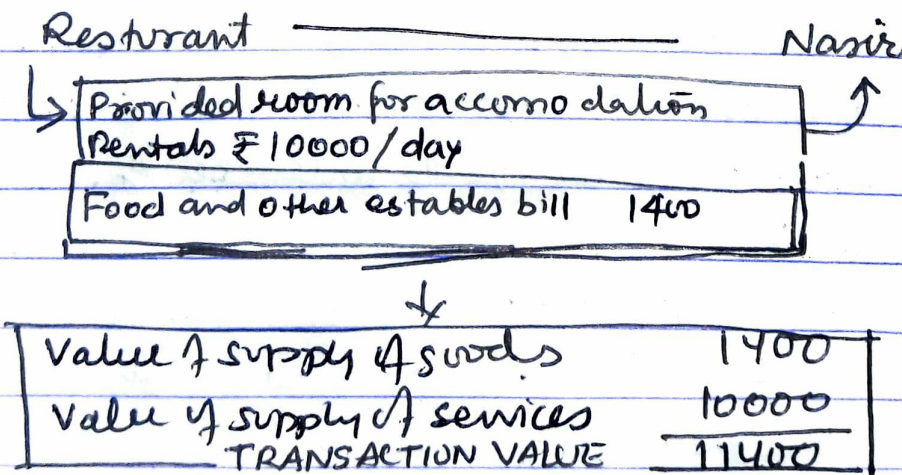 Resturant Nasir
Provided room for accomodation
Rentals ₹10000/day
Food and other estables bill 1400
Value of supply of goods 1400
Value of supply of services 10000
TRANSACTION VALUE 11400